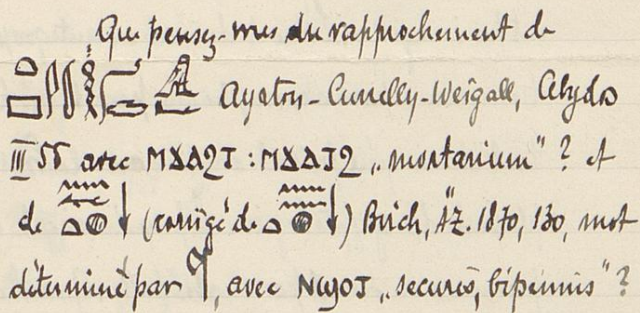 Que pensez-vous du rapprochement de
Ayrton-Currelly-Weigall, Abydos
III 55 avec ⲙϫⲁϩⲧ : ⲙϫⲁⲧϩ „mortarium" ? et
de (corrigé de ) Birch, ÄZ. 1870, 130, mot
déterminé par , avec ⲛϣⲟⲧ „securis, bipennis" ?